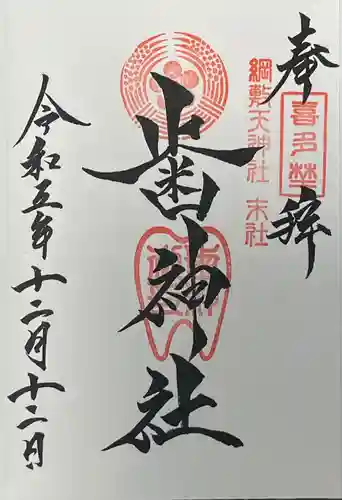 奉拝
喜多埜
綱敷天神社 末社
歯神社
令和五年十二月十二日